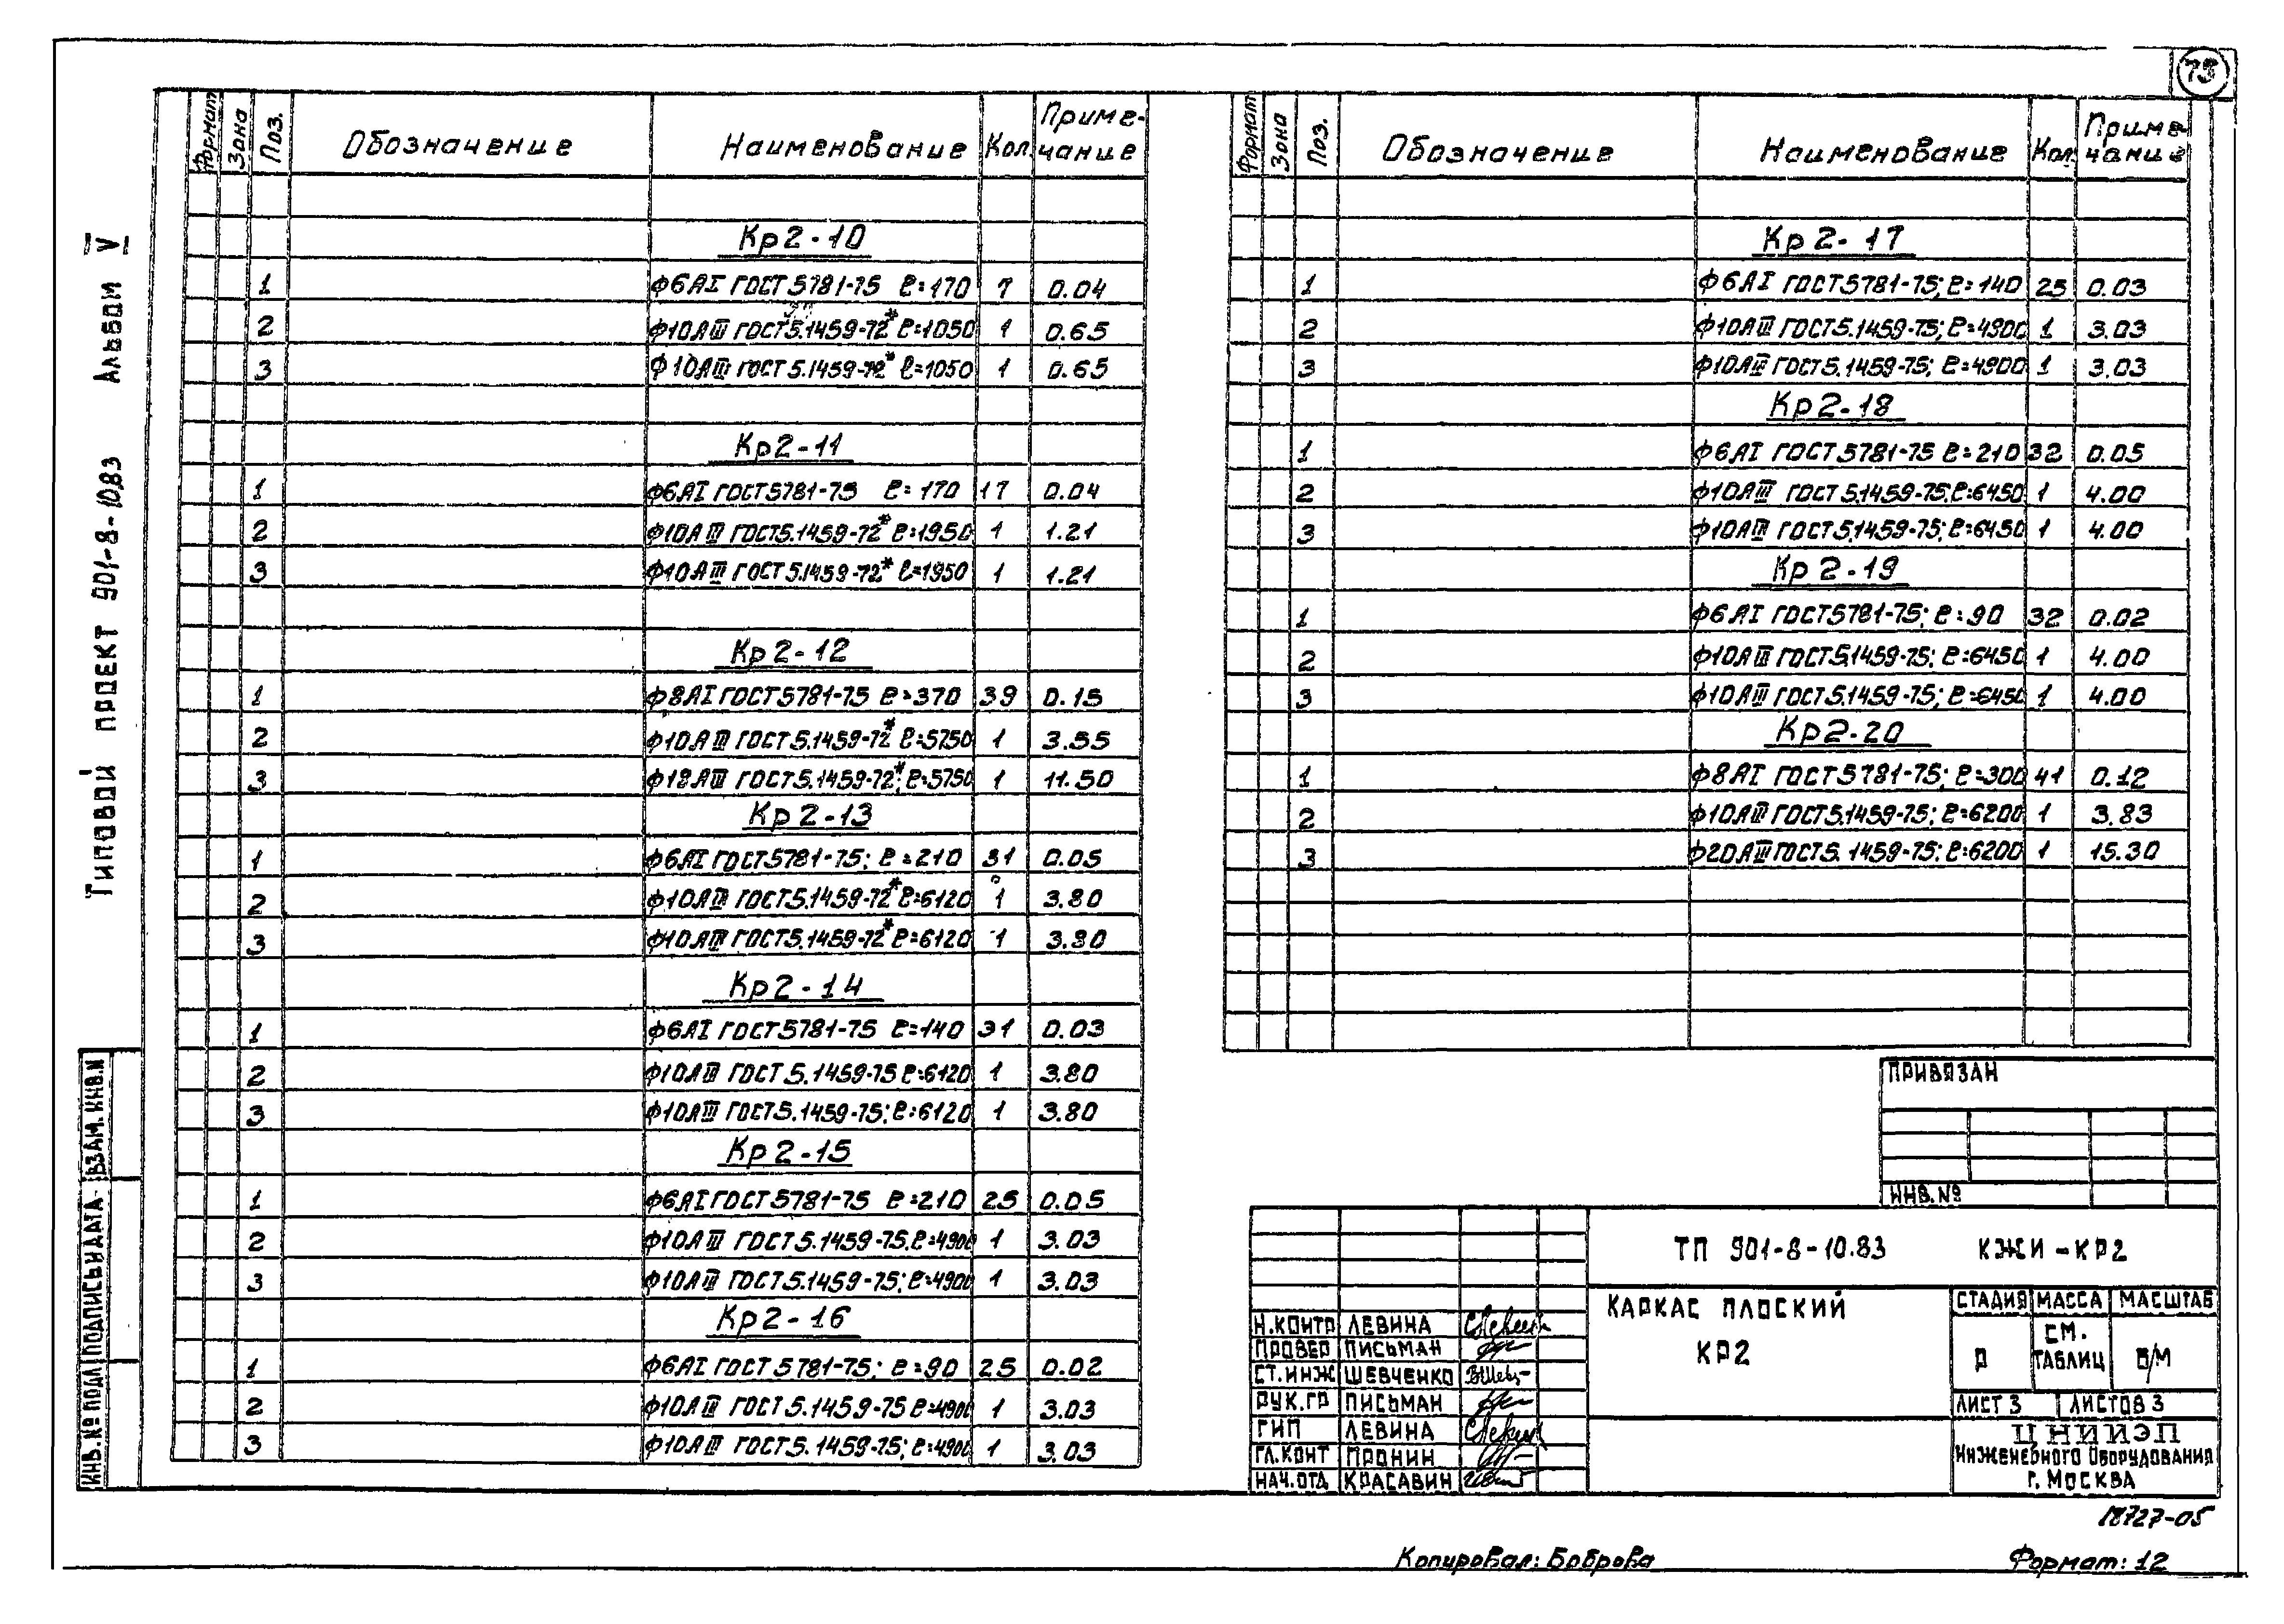 75
Типовой проект 901-8-10.83 Альбом V
Формат Зона Поз. Обозначение Наименование Кол. Приме-чание
Кр2-10
1 Ф6АI ГОСТ 5781-75 ℓ=170 7 0.04
2 Ф10АIII ГОСТ 5.1459-72* ℓ=1050 1 0.65
3 Ф10АIII ГОСТ 5.1459-72* ℓ=1050 1 0.65
Кр2-11
1 Ф6АI ГОСТ 5781-75 ℓ=170 17 0.04
2 Ф10АIII ГОСТ 5.1459-72* ℓ=1950 1 1.21
3 Ф10АIII ГОСТ 5.1459-72* ℓ=1950 1 1.21
Кр2-12
1 Ф8АI ГОСТ 5781-75 ℓ=370 39 0.15
2 Ф10АIII ГОСТ 5.1459-72* ℓ=5750 1 3.55
3 Ф18АIII ГОСТ 5.1459-72*; ℓ=5750 1 11.50
Кр2-13
1 Ф6АI ГОСТ 5781-75; ℓ=210 31 0.05
2 Ф10АIII ГОСТ 5.1459-72* ℓ=6120 1 3.80
3 Ф10АIII ГОСТ 5.1459-72* ℓ=6120 1 3.80
Кр2-14
1 Ф6АI ГОСТ 5781-75 ℓ=140 31 0.03
2 Ф10АIII ГОСТ 5.1459-75 ℓ=6120 1 3.80
3 Ф10АIII ГОСТ 5.1459-75; ℓ=6120 1 3.80
Кр2-15
1 Ф6АI ГОСТ 5781-75 ℓ=210 25 0.05
2 Ф10АIII ГОСТ 5.1459-75. ℓ=4900 1 3.03
3 Ф10АIII ГОСТ 5.1459-75; ℓ=4900 1 3.03
Кр2-16
1 Ф6АI ГОСТ 5781-75; ℓ=90 25 0.02
2 Ф10АIII ГОСТ 5.1459-75 ℓ=4900 1 3.03
3 Ф10АIII ГОСТ 5.1459-75; ℓ=4900 1 3.03
Формат Зона Поз. Обозначение Наименование Кол. Приме-чание
Кр2-17
1 Ф6АI ГОСТ 5781-75; ℓ=140 25 0.03
2 Ф10АIII ГОСТ 5.1459-75; ℓ=4900 1 3.03
3 Ф10АIII ГОСТ 5.1459-75; ℓ=4900 1 3.03
Кр2-18
1 Ф6АI ГОСТ 5781-75 ℓ=210 32 0.05
2 Ф10АIII ГОСТ 5.1459-75. ℓ=6450 1 4.00
3 Ф10АIII ГОСТ 5.1459-75; ℓ=6450 1 4.00
Кр2-19
1 Ф6АI ГОСТ 5781-75; ℓ=90 32 0.02
2 Ф10АIII ГОСТ 5.1459-75; ℓ=6450 1 4.00
3 Ф10АIII ГОСТ 5.1459-75; ℓ=6450 1 4.00
Кр2-20
1 Ф8АI ГОСТ 5781-75; ℓ=300 41 0.12
2 Ф10АIII ГОСТ 5.1459-75; ℓ=6200 1 3.83
3 Ф20АIII ГОСТ 5.1459-75; ℓ=6200 1 15.30
ПРИВЯЗАН
ИНВ. №
ТП 901-8-10.83 КЖИ-КР2
КАРКАС ПЛОСКИЙ
КР2
СТАДИЯ МАССА МАСШТАБ
Р СМ. ТАБЛИЦ Б/М
ЛИСТ 3 ЛИСТОВ 3
Н.КОНТР ЛЕВИНА
ПРОВЕР ПИСЬМАН
СТ.ИНЖ ШЕВЧЕНКО
РУК.ГР ПИСЬМАН
ГИП ЛЕВИНА
ГЛ.КОНТ ПРОНИН
НАЧ.ОТД КРАСАВИН
ЦНИИЭП
ИНЖЕНЕРНОГО ОБОРУДОВАНИЯ
Г. МОСКВА
ИНВ.№ ПОДЛ ПОДПИСЬ И ДАТА ВЗАМ.ИНВ.N
18727-05
Копировал: Боброва
Формат: 12